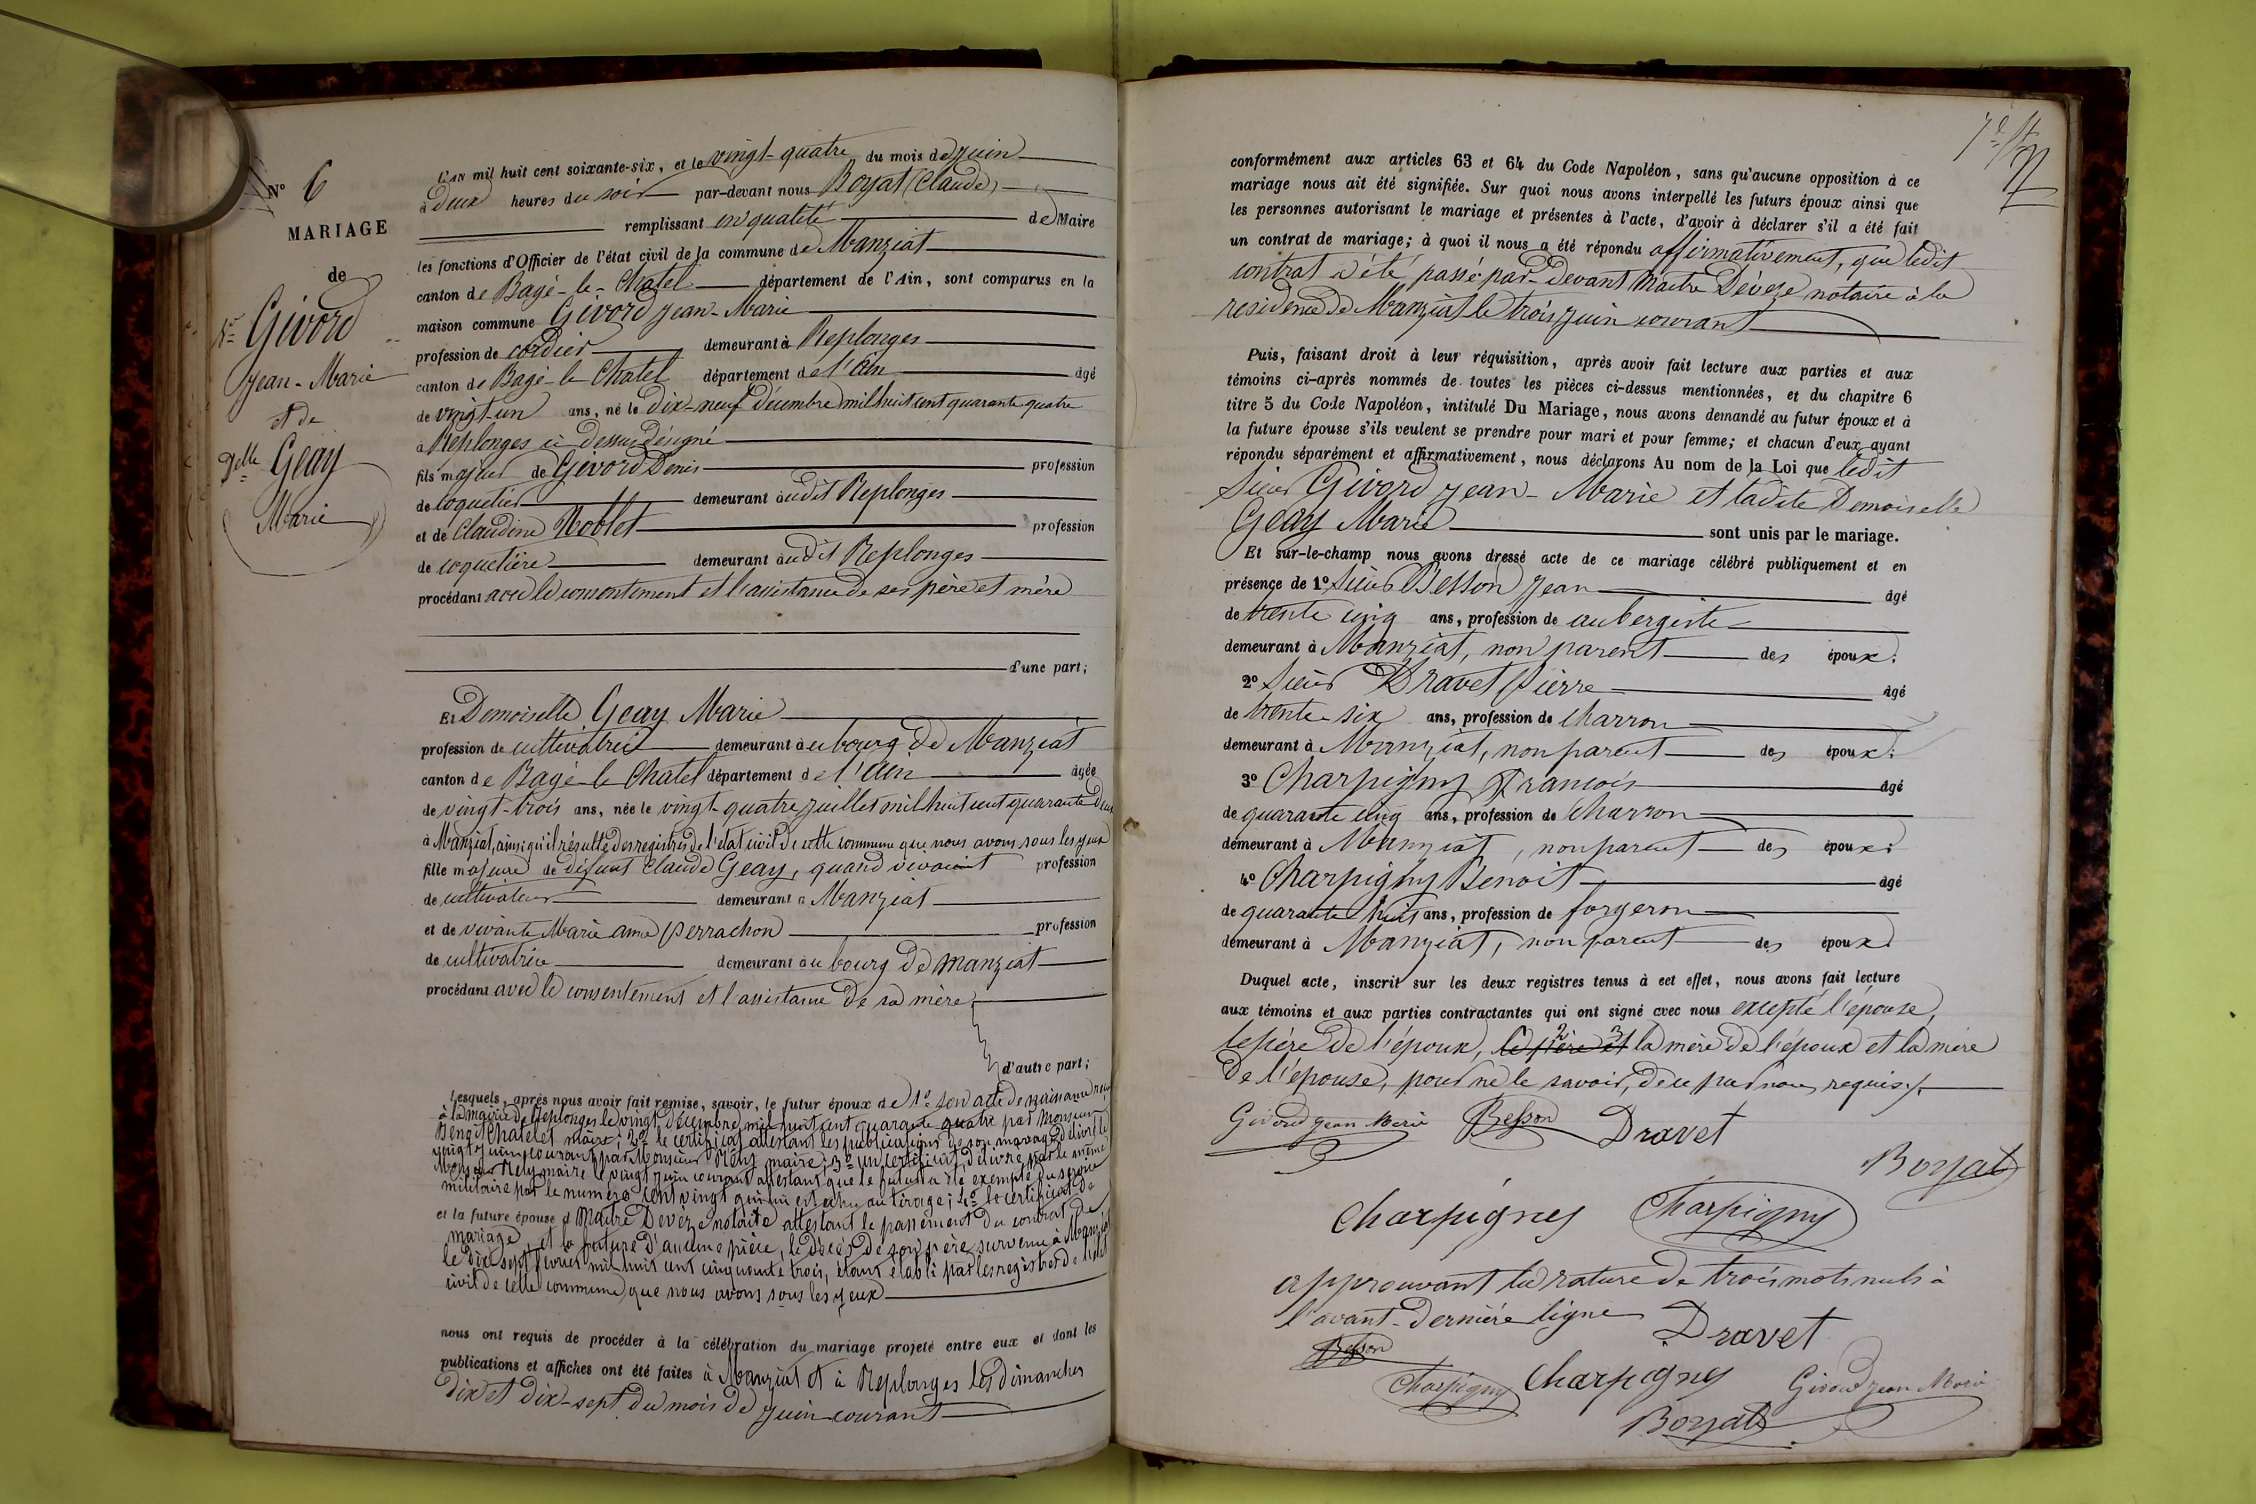 N° 6
MARIAGE
de
Sr Givord
Jean-Marie
et de
Delle Geay
Marie
L'AN mil huit cent soixante-six, et le vingt-quatre du mois de Juin
à deux heures du soir par-devant nous Boyat (Claude)
remplissant en qualité de Maire
les fonctions d'Officier de l'état civil de la commune de Manziat
canton de Bagé-le-Chatel département de l'Ain, sont comparus en la
maison commune Givord Jean-Marie
profession de cordier demeurant à Replonges
canton de Bagé-le Chatel département de l'Ain âgé
de vingt-un ans, né le dix-neuf décembre mil huit cent quarante quatre
à Replonges ci dessus désigné
fils majeur de Givord Denis profession
de coquetier demeurant audit Replonges
et de Claudine Noblet profession
de coquetière demeurant audit Replonges
procédant avec le consentement et l'assistance de ses père et mère
d'une part;
Et Demoiselle Geay Marie
profession de cultivatrice demeurant au bourg de Manziat
canton de Bagé-le Chatel département de l'Ain âgée
de vingt-trois ans, née le vingt-quatre juillet mil huit cent quarante deux
à Manziat, ainsi qu'il résulte des registres de l'état civil de cette commune que nous avons sous les yeux
fille majeure de défunt Claude Geay, quand vivait profession
de cultivateur demeurant à Manziat
et de vivante Marie anne Perrachon profession
de cultivatrice demeurant au bourg de Manziat
procédant avec le consentement et l'assistance de sa mère
d'autre part;
Lesquels, après nous avoir fait remise, savoir, le futur époux de 1° son acte de naissance reçu
à la mairie de Replonges le vingt décembre mil huit cent quarante quatre par Monsieur
Benoit Chatelet maire; 2° le certificat attestant les publications de son mariage délivré le
vingt juin courant par Monsieur Rely maire; 3° un certificat délivré par le même
Monsieur Rely maire le vingt juin courant attestant que le futur a été exempté du service
militaire par le numéro cent vingt qui lui est échu au tirage; 4° le certificat de
et la future épouse d Maitre Devèze notaire attestant le passement du contrat de
mariage, et la future d'aucune pièce, le décès de son père survenu à Manziat
le dix sept février mil huit cent cinquante trois, étant établi par les registres de l'état
civil de cette commune que nous avons sous les yeux
nous ont requis de procéder à la célébration du mariage projeté entre eux et dont les
publications et affiches ont été faites à Manziat et à Replonges les dimanches
dix et dix-sept du mois de Juin courant
conformément aux articles 63 et 64 du Code Napoléon, sans qu'aucune opposition à ce
mariage nous ait été signifiée. Sur quoi nous avons interpellé les futurs époux ainsi que
les personnes autorisant le mariage et présentes à l'acte, d'avoir à déclarer s'il a été fait
un contrat de mariage; à quoi il nous a été répondu affirmativement, que ledit
contrat a été passé par-devant Maitre Dévèze notaire à la
residence de Manziat le trois juin courant
Puis, faisant droit à leur réquisition, après avoir fait lecture aux parties et aux
témoins ci-après nommés de toutes les pièces ci-dessus mentionnées, et du chapitre 6
titre 5 du Code Napoléon, intitulé Du Mariage, nous avons demandé au futur époux et à
la future épouse s'ils veulent se prendre pour mari et pour femme; et chacun d'eux ayant
répondu séparément et affirmativement, nous déclarons Au nom de la Loi que ledit
Sieur Givord Jean-Marie et ladite Demoiselle
Geay Marie sont unis par le mariage.
Et sur-le-champ nous avons dressé acte de ce mariage célébré publiquement et en
présence de 1° Sieur Besson Jean âgé
de trente cinq ans, profession de aubergiste
demeurant à Manziat, non parent des époux.
2° Sieur Dravet Pierre âgé
de trente-six ans, profession de charron
demeurant à Manziat, non parent des époux.
3° Charpigny François âgé
de quarante cinq ans, profession de charron
demeurant à Manziat, non parent des époux.
4° Charpigny Benoit âgé
de quarante huit ans, profession de forgeron
demeurant à Manziat, non parent des époux.
Duquel acte, inscrit sur les deux registres tenus à cet effet, nous avons fait lecture
aux témoins et aux parties contractantes qui ont signé avec nous excepté l'épouse,
le père de l'époux, le père et la mère de l'époux et la mère
de l'épouse, pour ne le savoir, de ce par nous requis./.
Givord Jean Marie Besson Dravet
Boyat
Charpigney Charpigny
approuvant la rature de trois mots nuls à
l'avant-dernière ligne Dravet
Besson
Charpigny Charpigney Givord Jean Marie
Boyat